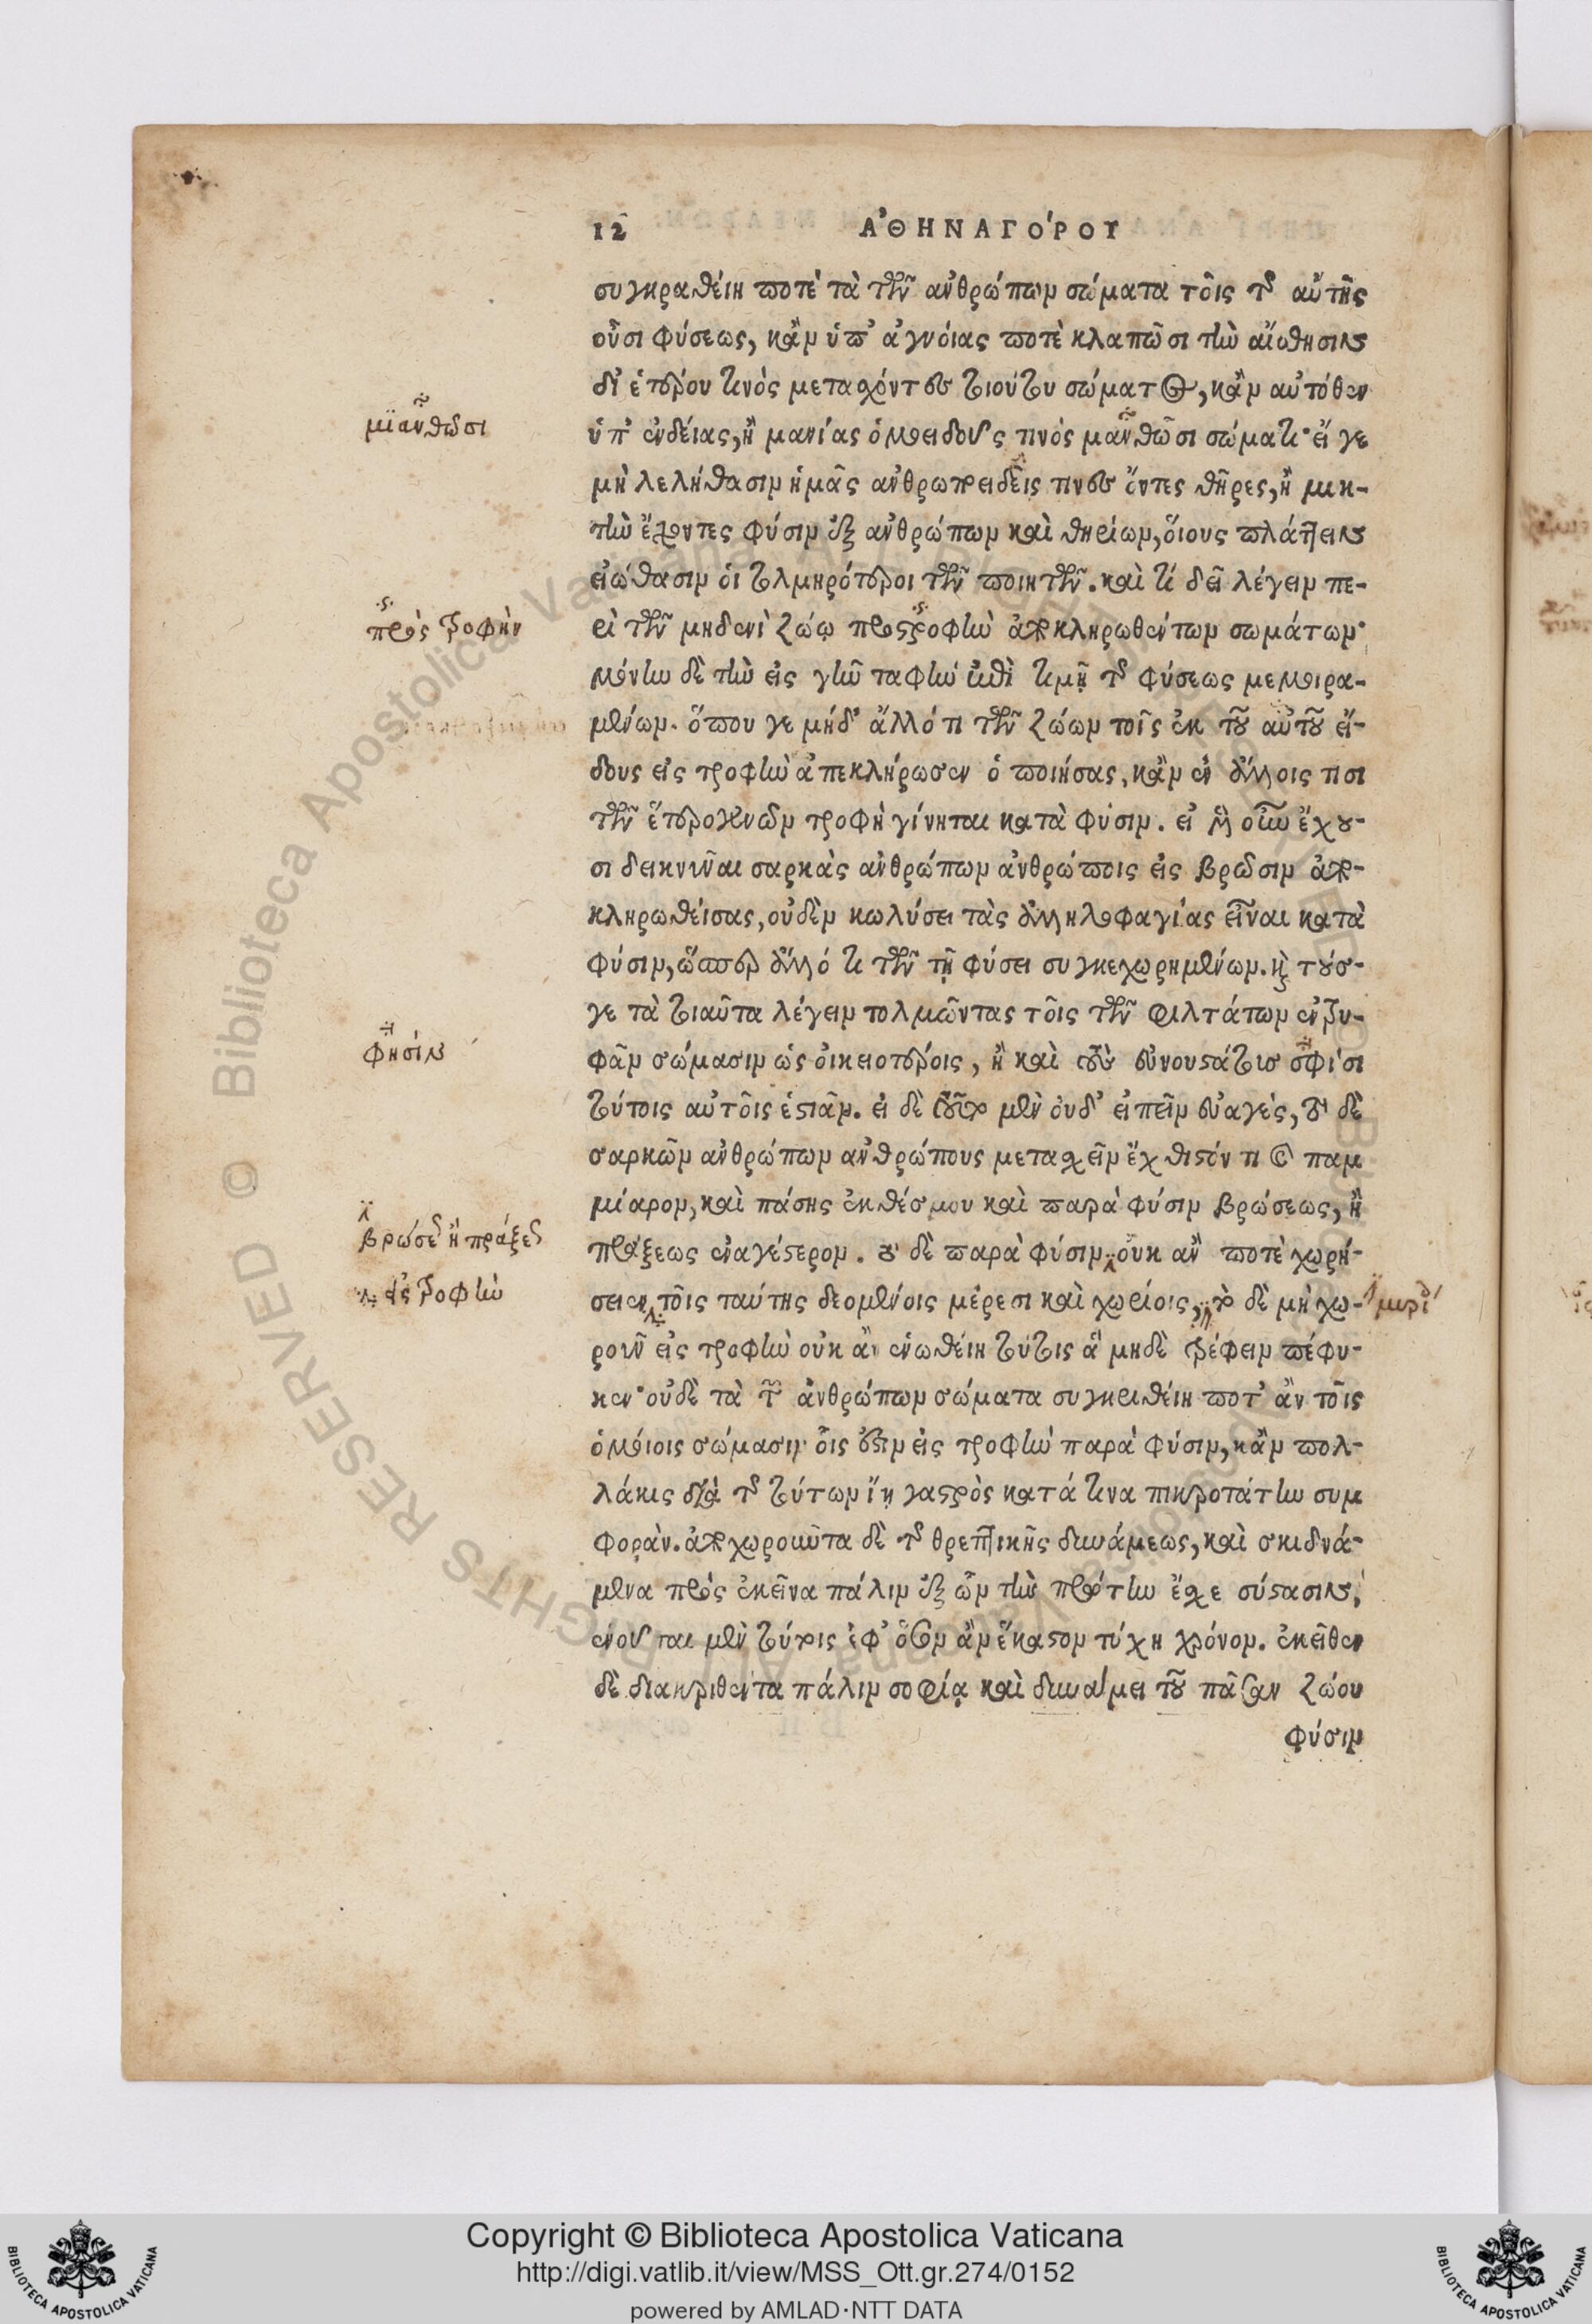 12 ἈΘΗΝΑΓΌΡΟΥ
συγκραθείη ποτὲ τὰ τῶν ἀνθρώπων σώματα τοῖς τῆς αὐτῆς
οὖσι φύσεως, κἂν ὑπ' ἀγνοίας ποτὲ κλαπῶσι τὴν αἴσθησιν
δι' ἑτέρου τινὸς μετασχόντες τοιούτου σώματος, κἂν αὐτόθεν
μϊανθῶσι
ὑπ' ἐνδείας, ἢ μανίας ὁμοειδοῦς τινὸς μανθῶσι σώματι· εἴ γε
μὴ λελήθασιν ἡμᾶς ἀνθρωποειδεῖς τινες ὄντες θῆρες, ἢ μικ-
τὴν ἔχοντες φύσιν ἐξ ἀνθρώπων καὶ θηρίων, οἵους πλάττειν
εἰώθασιν οἱ τολμηρότεροι τῶν ποιητῶν. καὶ τί δεῖ λέγειν πε-
πρὸς τροφὴν
ρὶ τῶν μηδενὶ ζώῳ προστροφὴν ἀποκληρωθέντων σωμάτων·
μόνην δὲ τὴν εἰς γῆν ταφὴν ἐπὶ τιμῇ τῆς φύσεως μεμοιρα-
μένων. ὅπου γε μήδ' ἄλλό τι τῶν ζώων τοῖς ἐκ τοῦ αὐτοῦ εἴ-
δους εἰς τροφὴν ἀπεκλήρωσεν ὁ ποιήσας, κἂν ἐν ἄλλοις τισι
τῶν ἑτερογενῶν τροφὴ γίνηται κατὰ φύσιν. εἰ μὲν οὖν ἔχου-
σι δεικνῦναι σαρκὰς ἀνθρώπων ἀνθρώποις εἰς βρῶσιν ἀπο-
κληρωθείσας, οὐδὲν κωλύσει τὰς ἀλληλοφαγίας εἶναι κατὰ
φύσιν, ὥσπερ ἄλλό τι τῶν τῇ φύσει συγκεχωρημένων. καὶ τούσ-
γε τὰ τοιαῦτα λέγειν τολμῶντας τοῖς τῶν φιλτάτων ἐντρυ-
φησὶν
φᾶν σώμασιν ὡς οἰκειοτέροις, ἢ καὶ τοὺς εὐνουστάτους σφίσι
τούτοις αὐτοῖς ἑστιᾶν. εἰ δὲ τοῦτο μὲν οὐδ' εἰπεῖν εὐαγές, τὸ δὲ
σαρκῶν ἀνθρώπων ἀνθρώπους μετασχεῖν ἔχθιστόν τι καὶ παμ
μίαρον, καὶ πάσης ἐκθέσμου καὶ παρὰ φύσιν βρώσεως, ἢ
βρώσε ἢ πράξε
πράξεως ἐναγέστερον. τὸ δὲ παρὰ φύσιν, οὐκ ἄν ποτὲ χωρή-
εἰς τροφὴν
σειεν τοῖς ταύτης δεομένοις μέρεσι καὶ χωρίοις, τὸ δὲ μὴ χω-
ροῦν εἰς τροφὴν οὐκ ἂν ἑνωθείη τούτοις ἃ μηδὲ τρέφειν πέφυ-
κεν· οὐδὲ τὰ τῶν ἀνθρώπων σώματα συγκριθείη ποτ' ἂν τοῖς
ὁμοίοις σώμασιν οἷς ἐστιν εἰς τροφὴν παρὰ φύσιν, κἂν πολ-
λάκις διὰ τῆς τούτων ἴῃ γαστρὸς κατά τινα πικροτάτην συμ
φοράν. ἀποχωροῦντα δὲ τῆς θρεπτικῆς δυνάμεως, καὶ σκιδνά-
μενα πρὸς ἐκεῖνα πάλιν ἐξ ὧν τὴν πρώτην ἔσχε σύστασιν,
ἑνοῦται μὲν τούτοις ἐφ' ὅσον ἂν ἕκαστον τύχῃ χρόνον. ἐκεῖθεν
δὲ διακριθέντα πάλιν σοφίᾳ καὶ δυνάμει τοῦ πᾶσαν ζώου
φύσιν